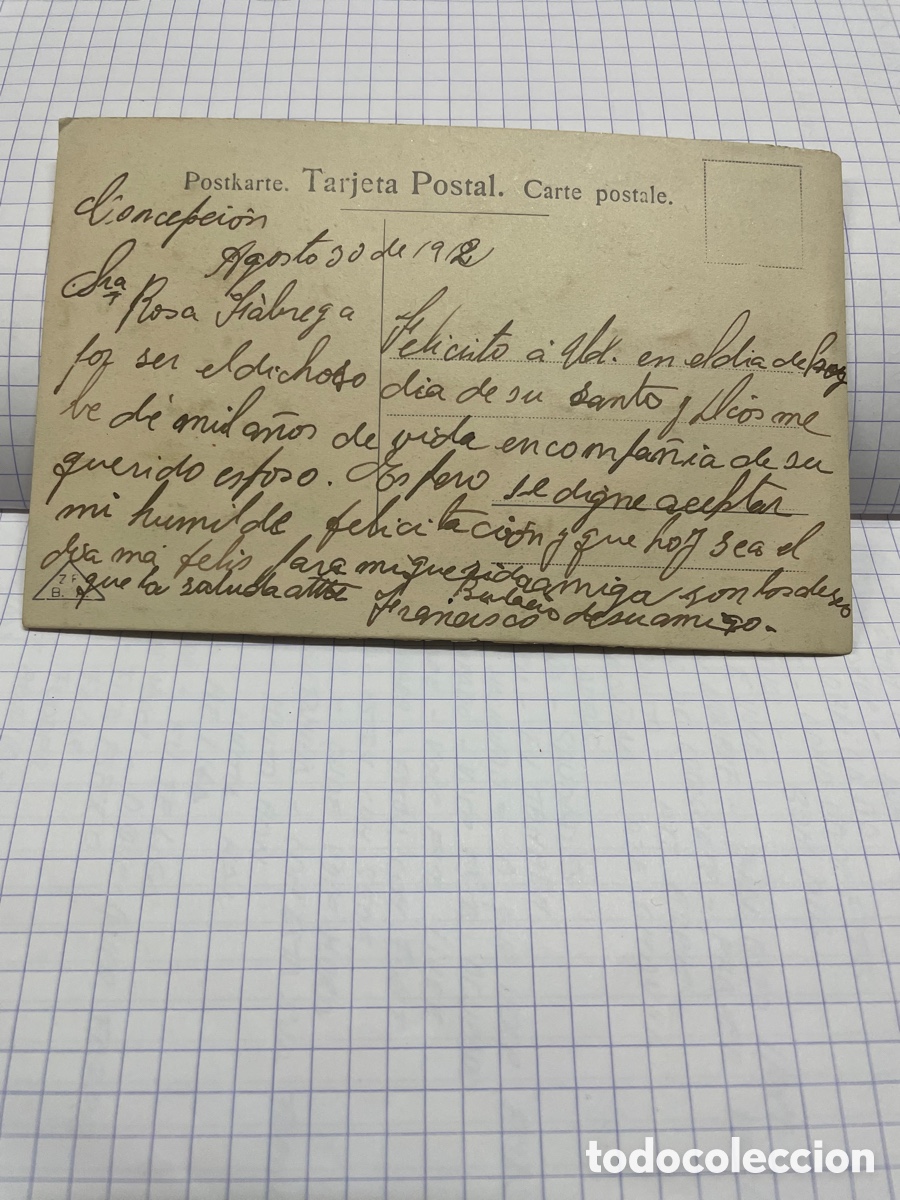 Postkarte. Tarjeta Postal. Carte postale.
Concepción
Agosto 30 de 1912
Sra
Rosa Fiàbrega
Felicito á Ud. en el dia de hoy
por ser el dichoso dia de su santo y Dios me
be dé mil años de vida en compañia de su
querido esposo. Espero se digne aceptar
mi humilde felicitación y que hoy sea el
dia ma felis para mi querida amiga son los deseo
que la saluda atte Francisco de su amigo.
Z F
B.
todocoleccion